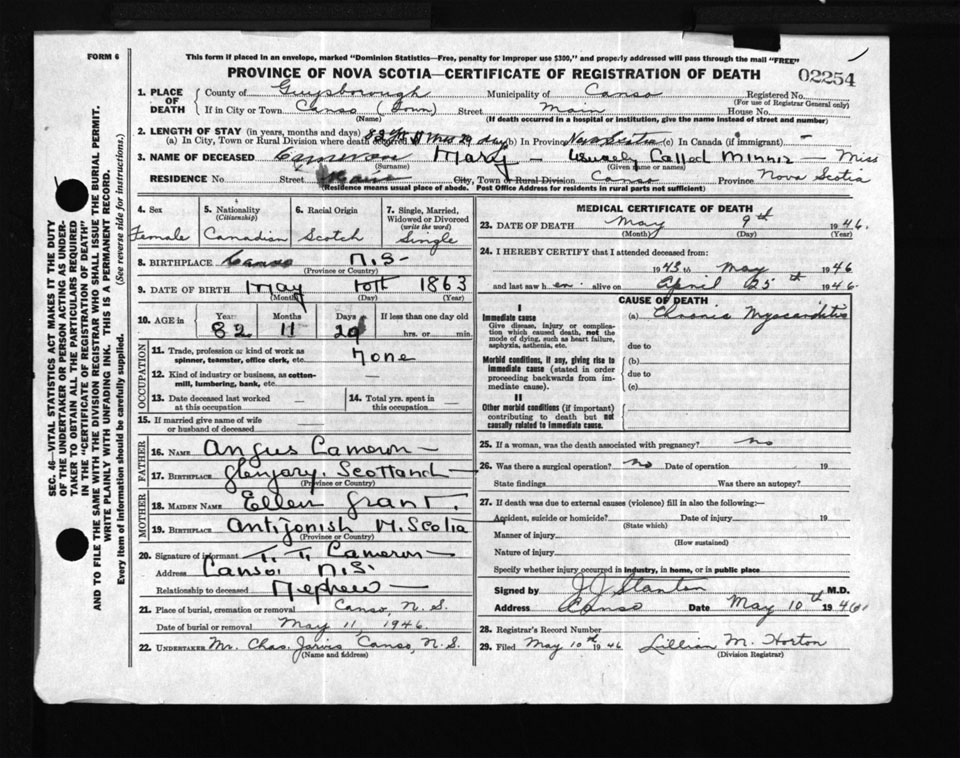 FORM 6
This form if placed in an envelope, marked "Dominion Statistics—Free, penalty for improper use $300," and properly addressed will pass through the mail "FREE"
PROVINCE OF NOVA SCOTIA—CERTIFICATE OF REGISTRATION OF DEATH
02254
1. PLACE OF DEATH
County of Guysborough Municipality of Canso Registered No.
(For use of Registrar General only)
If in City or Town Canso (Town) Street Main House No.
(Name) (If death occurred in a hospital or institution, give the name instead of street and number)
2. LENGTH OF STAY (in years, months and days)
(a) In City, Town or Rural Division where death occurred 82 yrs 11 mos 29 days (b) In Province Nova Scotia (c) In Canada (if immigrant) —
3. NAME OF DECEASED Cameron Mary — Usually Called Minnie — Miss
(Surname) (Given name or names)
RESIDENCE No Street Main City, Town or Rural Division Canso Province Nova Scotia
(Residence means usual place of abode. Post Office Address for residents in rural parts not sufficient)
4. Sex
Female
5. Nationality
(Citizenship)
Canadian
6. Racial Origin
Scotch
7. Single, Married, Widowed or Divorced
(write the word)
Single
8. BIRTHPLACE Canso N.S.
(Province or Country)
9. DATE OF BIRTH May 10th 1863
(Month) (Day) (Year)
10. AGE in Years Months Days If less than one day old
82 11 29 hrs. or min.
OCCUPATION
11. Trade, profession or kind of work as spinner, teamster, office clerk, etc. None
12. Kind of industry or business, as cotton-mill, lumbering, bank, etc. —
13. Date deceased last worked at this occupation —
14. Total yrs. spent in this occupation —
15. If married give name of wife or husband of deceased
FATHER
16. NAME Angus Cameron —
17. BIRTHPLACE Glengary. Scotland —
(Province or Country)
MOTHER
18. MAIDEN NAME Ellen Grant.
19. BIRTHPLACE Antigonish N. Scotia
(Province or Country)
20. Signature of informant T. T. Cameron —
Address Canso. N.S.
Relationship to deceased Nephew —
21. Place of burial, cremation or removal Canso, N.S.
Date of burial or removal May 11, 1946.
22. UNDERTAKER Mr. Chas. Jarvis Canso, N.S.
(Name and Address)
MEDICAL CERTIFICATE OF DEATH
23. DATE OF DEATH May 9th 1946.
(Month) (Day) (Year)
24. I HEREBY CERTIFY that I attended deceased from:
1943 to May 1946
and last saw her alive on April 25th 1946.
CAUSE OF DEATH
I
Immediate cause
Give disease, injury or complication which caused death, not the mode of dying, such as heart failure, asphyxia, asthenia, etc.
(a) Chronic Myocarditis
due to
Morbid conditions, if any, giving rise to immediate cause (stated in order proceeding backwards from immediate cause).
(b)
due to
(c)
II
Other morbid conditions (if important) contributing to death but not causally related to immediate cause.
25. If a woman, was the death associated with pregnancy? no
26. Was there a surgical operation? no Date of operation 19
State findings Was there an autopsy?
27. If death was due to external causes (violence) fill in also the following:—
Accident, suicide or homicide? Date of injury 19
(State which)
Manner of injury
(How sustained)
Nature of injury
Specify whether injury occurred in industry, in home, or in public place
Signed by J J Stanton M.D.
Address Canso Date May 10th 1946
28. Registrar's Record Number
29. Filed May 10th 1946 Lillian M. Horton
(Division Registrar)
SEC. 46—VITAL STATISTICS ACT MAKES IT THE DUTY
OF THE UNDERTAKER OR PERSON ACTING AS UNDER-
TAKER TO OBTAIN ALL THE PARTICULARS REQUIRED
IN THE "CERTIFICATE OF REGISTRATION OF DEATH"
AND TO FILE THE SAME WITH THE DIVISION REGISTRAR WHO SHALL ISSUE THE BURIAL PERMIT.
WRITE PLAINLY WITH UNFADING INK. THIS IS A PERMANENT RECORD.
Every item of information should be carefully supplied. (See reverse side for instructions.)